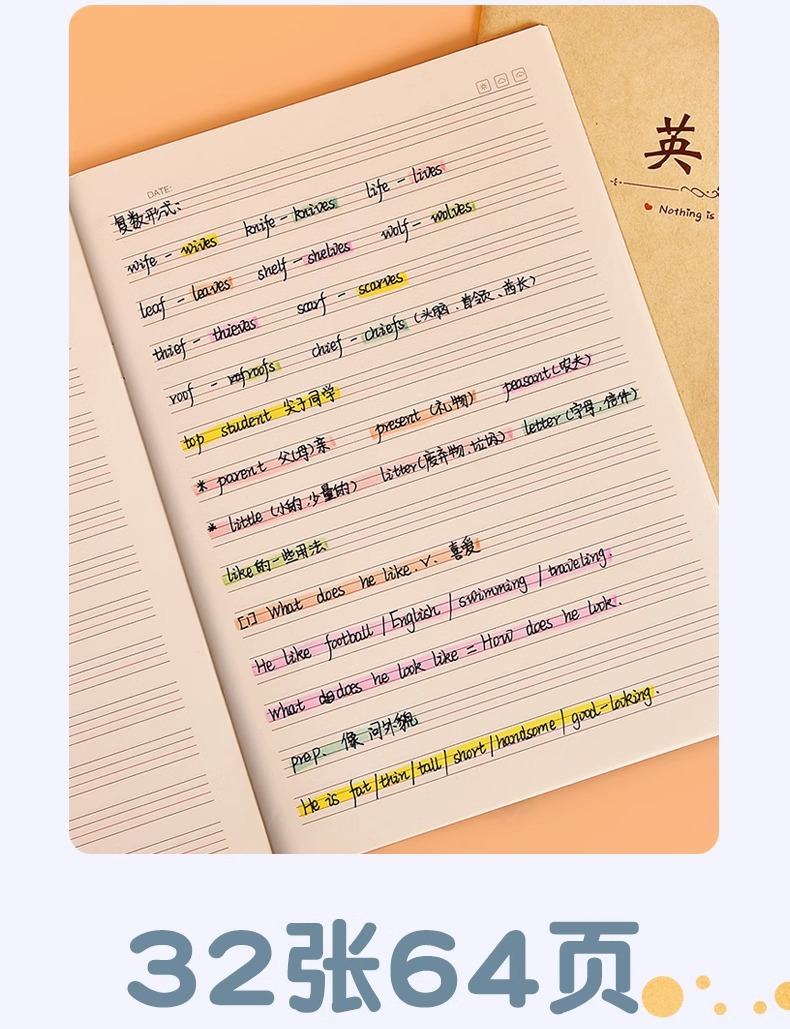 DATE:
复数形式:
wife - wives knife - knives life - lives
leaf - leaves shelf - shelves wolf - wolves
thief - thieves scarf - scarves
roof - roofs chief - chiefs (头脑、首领、酋长)
top student 尖子同学
* parent 父(母)亲 present (礼物) peasant(农夫)
* little (小的,少量的) litter(废弃物、垃圾) letter (字母,信件)
like的一些用法
[1] What does he like. v. 喜爱
He like football / English / swimming / traveling.
What does he look like = How does he look.
prep. 像 问外貌
He is fat / thin / tall / short / handsome / good-looking.
英
Nothing is
32张64页